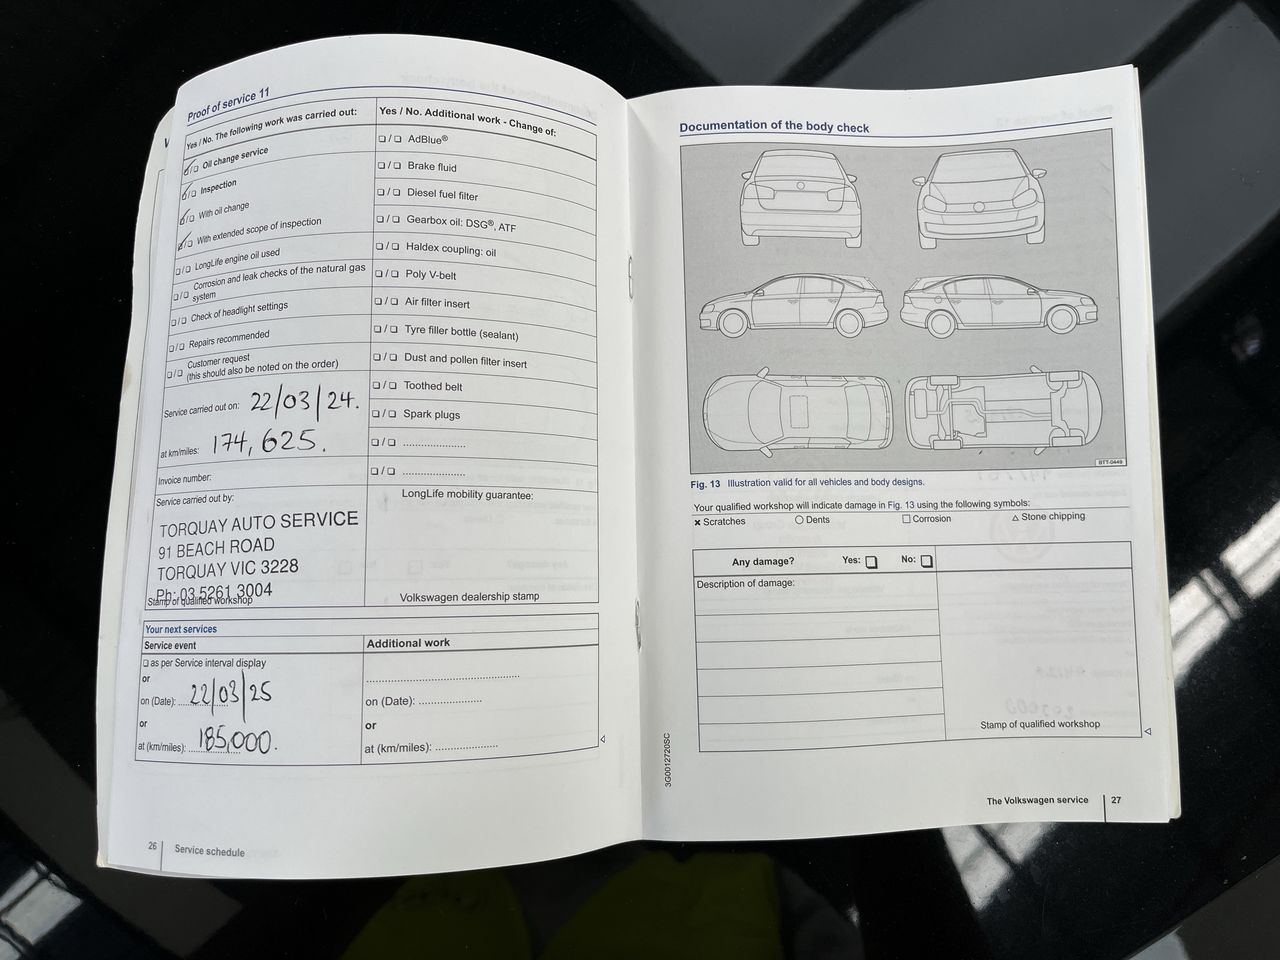 Proof of service 11
Yes / No. The following work was carried out:
❏/❏ Oil change service
❏/❏ Inspection
❏/❏ With oil change
❏/❏ With extended scope of inspection
❏/❏ LongLife engine oil used
❏/❏ Corrosion and leak checks of the natural gas
system
❏/❏ Check of headlight settings
❏/❏ Repairs recommended
❏/❏ Customer request
(this should also be noted on the order)
Service carried out on: 22/03/24.
at km/miles: 174,625.
Invoice number:
Service carried out by:
TORQUAY AUTO SERVICE
91 BEACH ROAD
TORQUAY VIC 3228
Ph: 03 5261 3004
Stamp of qualified workshop
Yes / No. Additional work - Change of:
❏/❏ AdBlue®
❏/❏ Brake fluid
❏/❏ Diesel fuel filter
❏/❏ Gearbox oil: DSG®, ATF
❏/❏ Haldex coupling: oil
❏/❏ Poly V-belt
❏/❏ Air filter insert
❏/❏ Tyre filler bottle (sealant)
❏/❏ Dust and pollen filter insert
❏/❏ Toothed belt
❏/❏ Spark plugs
❏/❏ ....................
❏/❏ ....................
LongLife mobility guarantee:
Volkswagen dealership stamp
Your next services
Service event
❏ as per Service interval display
or
on (Date): 22/03/25
or
at (km/miles): 185,000.
Additional work
..................................................
on (Date): ....................
or
at (km/miles): ....................
26 Service schedule
Documentation of the body check
BTT-0449
Fig. 13 Illustration valid for all vehicles and body designs.
Your qualified workshop will indicate damage in Fig. 13 using the following symbols:
× Scratches ○ Dents □ Corrosion △ Stone chipping
Any damage? Yes: ❏ No: ❏
Description of damage:
Stamp of qualified workshop
3G0012720SC
The Volkswagen service 27